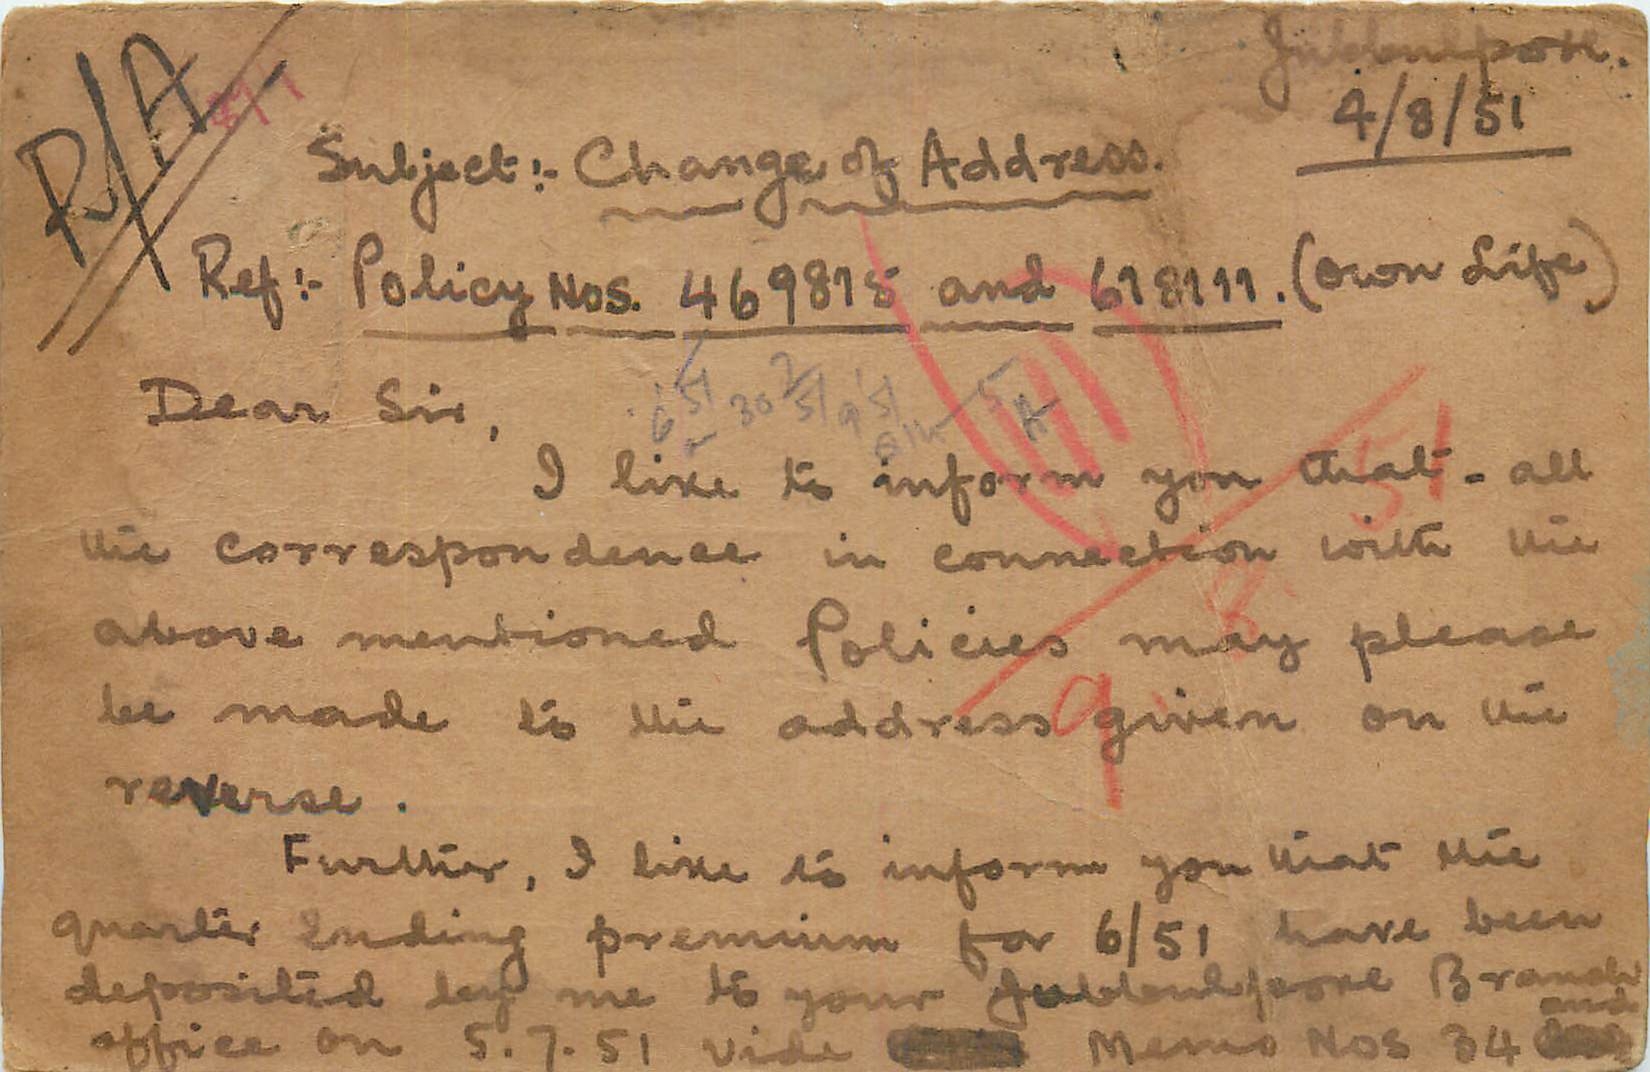 R/A
Jubbulpore.
4/8/51
Subject:- Change of Address.
Ref:- Policy Nos. 469815 and 618111. (Own Life)
Dear Sir,
I like to inform you that - all
the correspondence in connection with the
above mentioned Policies may please
be made to the address given on the
reverse.
Further, I like to inform you that the
quarter ending premium for 6/51 have been
deposited by me to your Jubbulpore Branch
office on 5.7.51 vide Memo Nos 34 and